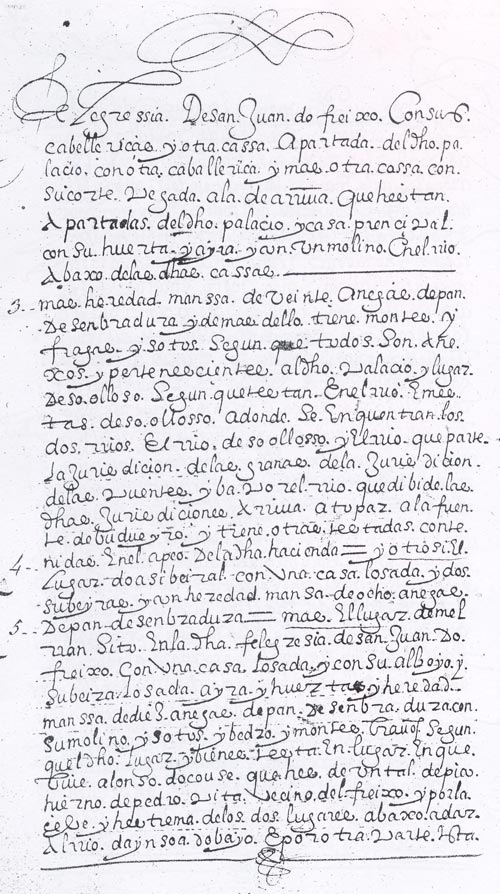 felegressia. De san. Juan. do freixo. Con sus.
caballericas y otra cassa. Apartada. del dho. pa
lacio. con otra. caballerica. y mas otra cassa. con.
su corte. Pegada. a la. de arriua. Que hestan.
Apartadas. del dho. palacio. y casa. prencipal.
con su huerta. y ayra. y con Un molino. En el rrio.
Abaxo. de las dhas. cassas.
3 mas heredad mansa. de veinte. Anegas. de pan.
De senbradura y de mas dello. tiene. montes. y
fragas. y sotos. Segun. que todos. Son. Ane
xos. y pertenescientes. al dho. Palacio. y lugar.
De so. olloso. Segun. que restan. En el rrio.
tas. de so. ollosso. adonde. Se. Enquentran. los
dos. rrios. El rrio. de so ollosso. y El rrio. que parte.
La Juridicion. de las granas. de la. Juridicion.
de las. Puentes. y ba. Por el. rrio. que dibide. las
dhas. Juridiciones. Arriua. a topar. a la fuen
te. de y tiene. otras. restadas. conte
nidas. En el. apeo. De la dha. hacienda = y otrosi. El.
4 Lugar. do asibeiral. con Una. casa. losada. y dos.
subeyras. y con heredad. mansa. de ocho. anegas.
5 De pan. de senbradura = mas. El lugar. do mel
rian. Sito. En la dha. felegresia. de san. Juan. Do.
freixo. Con Una. casa. Losada. y con su. alboyo. y.
subeira. Losada. ayra. y huerta. y heredad.
manssa. de diez. anegas. de pan. De senbradura. con.
su molino. y sotos. y montes. brauos. Segun.
que l dho. Lugar. y bienes. resta. En. lugar. En que.
biue. alonso. do couse. que hes. de Un tal. de pico.
huerno. de pedro. Pita. vecino. del freixo. y por la
y hestrema. de los. dos. lugares. abaxo. a dar.
Al rrio. E por otra. Parte.